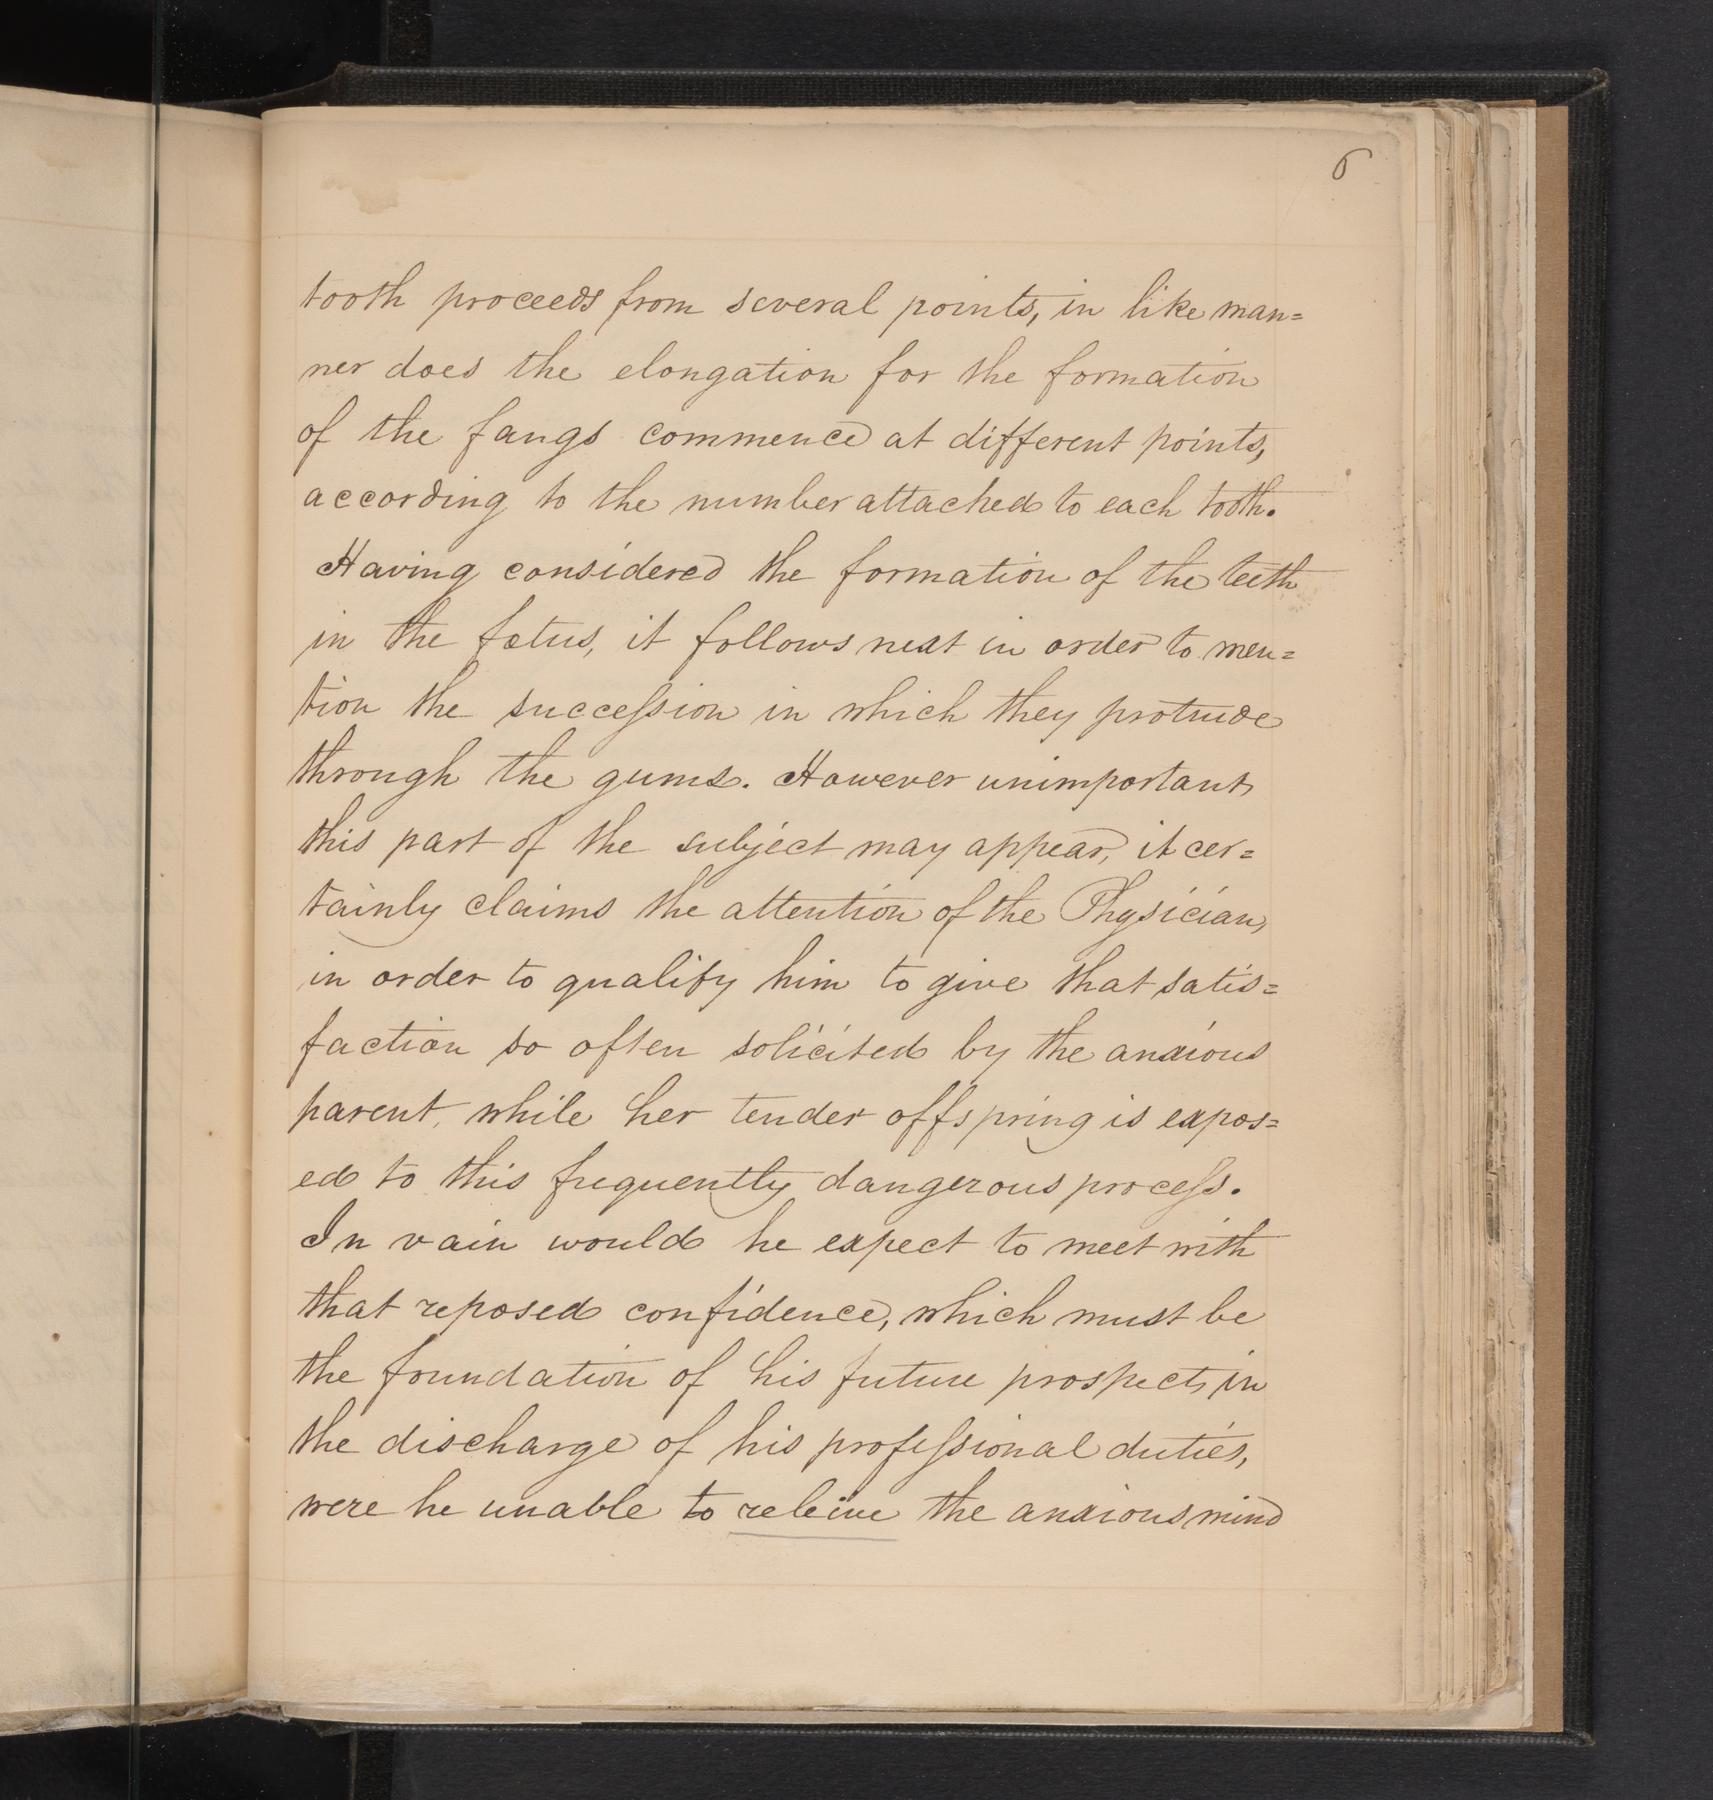 6
tooth proceeds from several points, in like man=
ner does the elongation for the formation
of the fangs commence at different points,
according to the number attached to each tooth.
Having considered the formation of the teeth
in the fœtus, it follows next in order to men=
tion the succession in which they protrude
through the gums. However unimportant
this part of the subject may appear, it cer=
tainly claims the attention of the Physician,
in order to qualify him to give that satis=
faction so often solicited by the anxious
parent, while her tender offspring is expos=
ed to this frequently dangerous process.
In vain would he expect to meet with
that reposed confidence, which must be
the foundation of his future prospects in
the discharge of his professional duties,
were he unable to releive the anxious mind